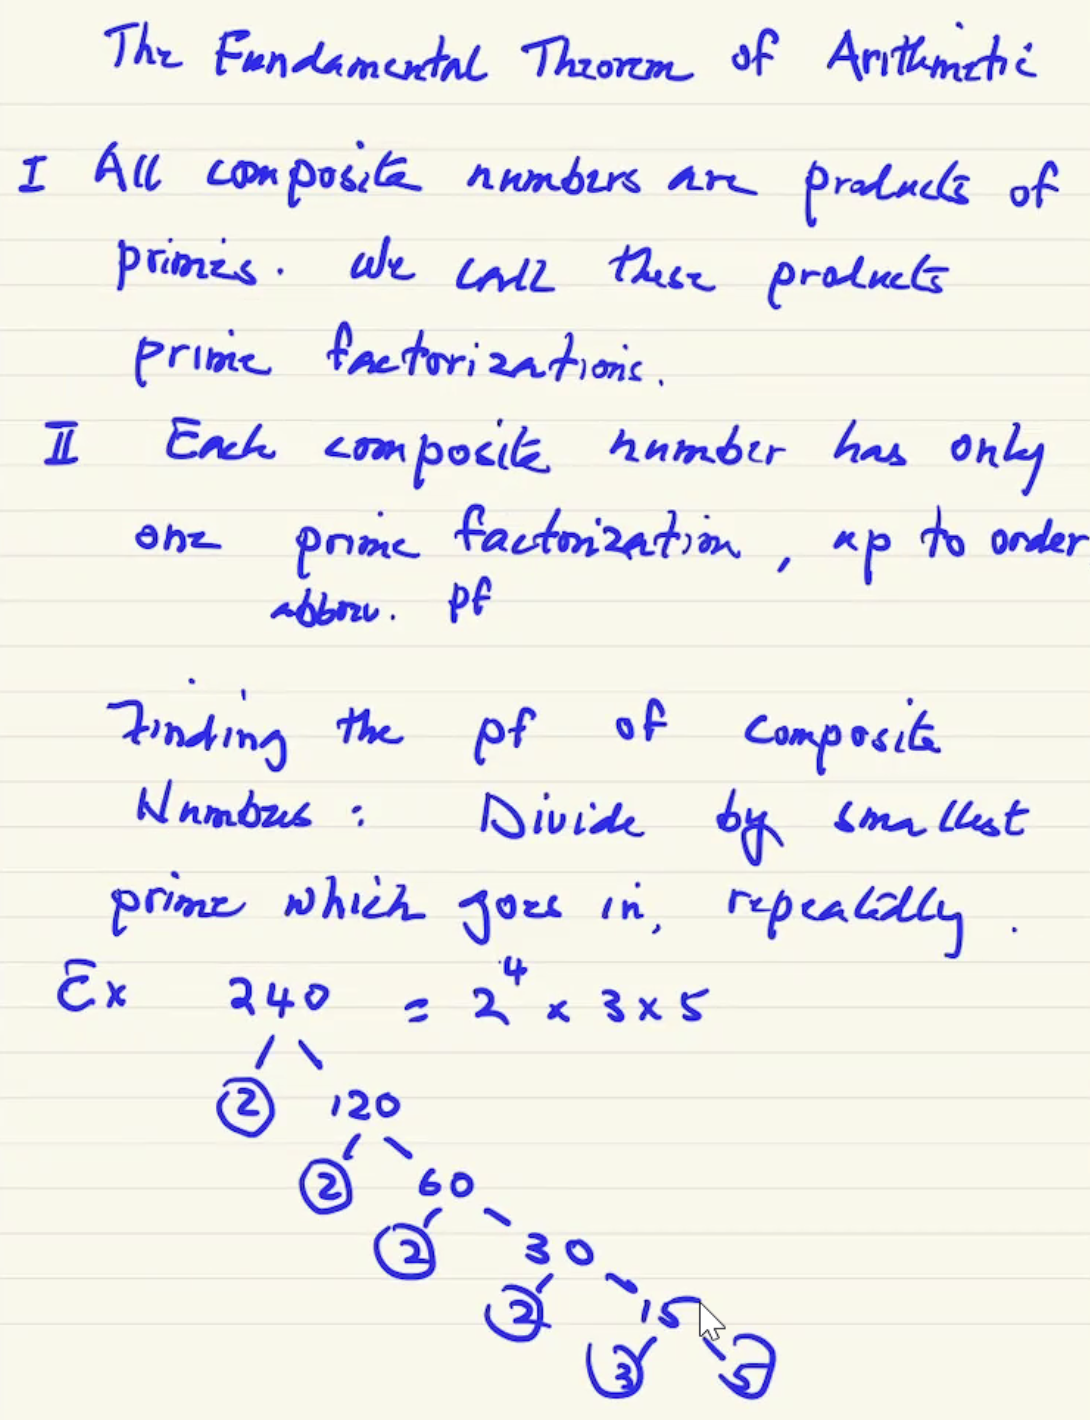 The Fundamental Theorem of Arithmetic
I All composite numbers are products of
primes. We call these products
prime factorizations.
II Each composite number has only
one prime factorization, up to order
abbrev. pf
Finding the pf of composite
Numbers: Divide by smallest
prime which goes in, repeatedly.
Ex 240 = 2⁴ x 3 x 5
2 120
2 60
2 30
2 15
3 5